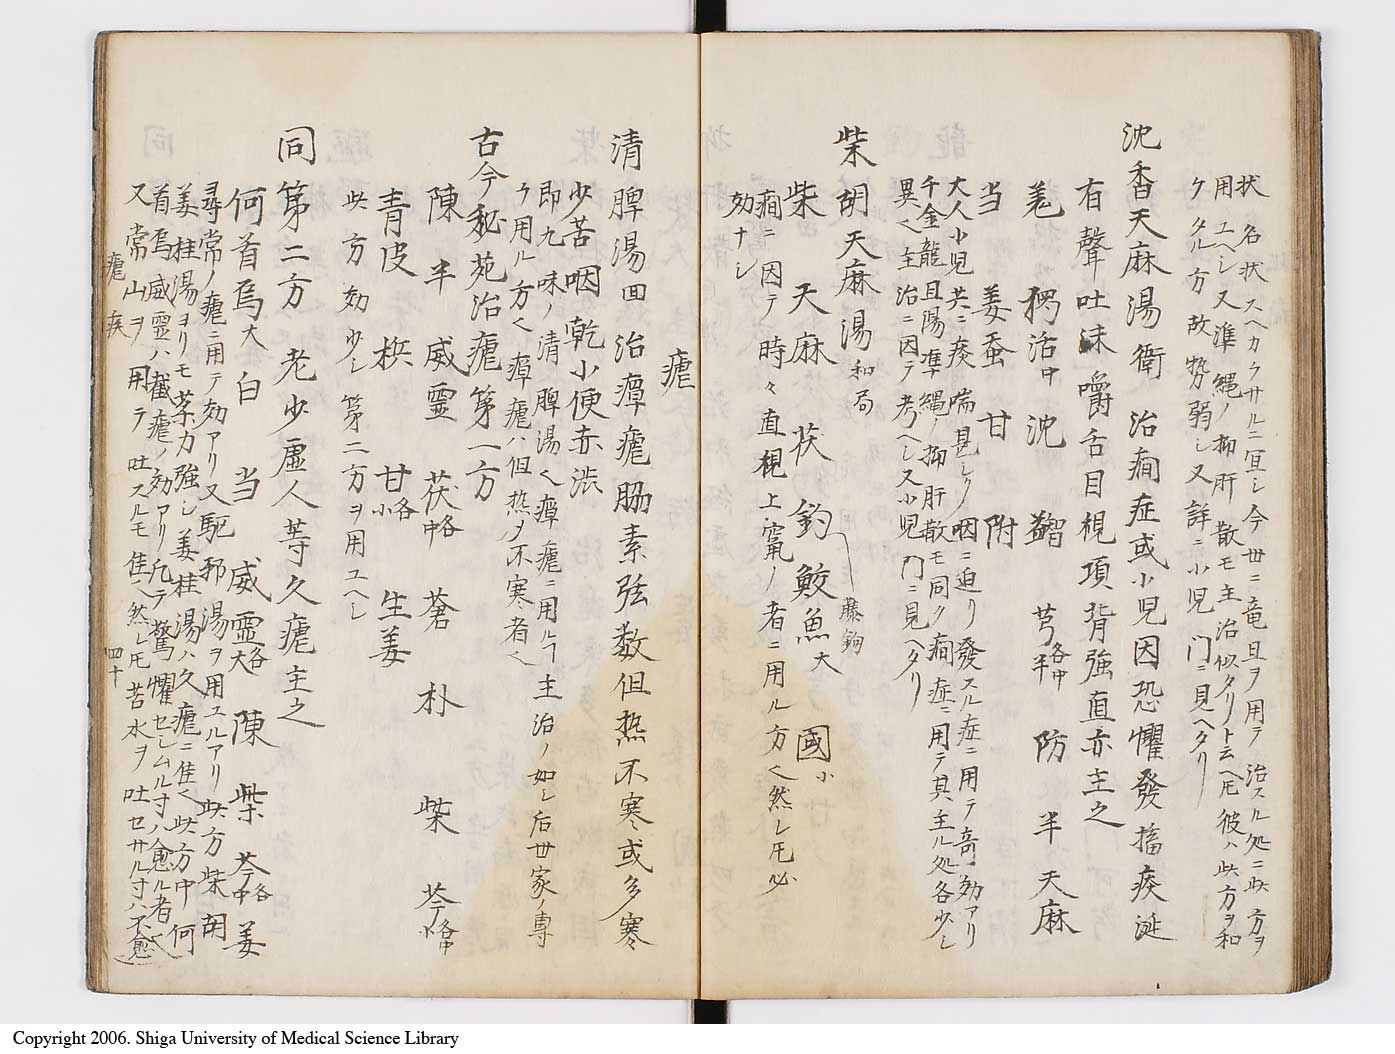 状名状スヘカラサルニ宜シ今世ニ竜旦ヲ用テ治スル処ニ此方ヲ
用ユヘシ又準縄ノ抑肝散モ主治似タリト云ヘ𪜈彼ハ此方ヲ和
ケタル方故勢弱シ又詳ニ小児門ニ見ヘタリ
沈香天麻湯衛 治癇症或小児因恐懼發搐痰涎
有聲吐沫嚼舌目視項背強直亦主之
羌 獨活中 沈 蝎 芎半各中 防 半 天麻
当 姜蚕 甘 附
大人小児共ニ痰喘甚シク咽ニ迫リ發スル症ニ用テ奇効アリ
千金龍旦湯準縄ノ抑肝散モ同ク癇症ニ用テ其主ル処各少シ
異ヘ主治ニ因テ考ヘシ又小児門ニ見ヘタリ
柴胡天麻湯和局
柴 天麻 茯 釣 鮫魚大 國小
藤鉤
癇ニ因テ時々直視上竄ノ者ニ用ル方ヘ然レ𪜈必
効ナシ
瘧
清脾湯回 治瘴瘧脇素弦数但热不寒或多寒
少苦咽乾小便赤渋
即九味ノ清脾湯ヘ瘴瘧ニ用ル𠃍主治ノ如シ后世家ノ専
ラ用ル方ヘ瘴瘧ハ但热ヲ不寒者ヘ
古今秘苑治瘧第一方
陳 半 威霊 茯中各 蒼 朴 柴 芩
青皮 梹 甘小各 生姜
此方効少シ第二方ヲ用ユヘシ
同第二方 老少虚人等久瘧主之
何首烏大 白 当 威霊大各 陳 柴 芩中各 姜
尋常ノ瘧ニ用テ効アリ又駆邪湯ヲ用ユルアリ此方柴胡
姜桂湯ヨリモ某力強シ姜桂湯ハ久瘧ニ佳ヘ此方中何
首烏威霊ハ截瘧ノ効アリ凡テ驚懼セシムル寸ハ愈ル者ヘ
又常山ヲ用テ吐スルモ佳ヘ然レ𪜈苦水ヲ吐セサル寸ハ不愈
瘧疾
四十
Copyright 2006. Shiga University of Medical Science Library